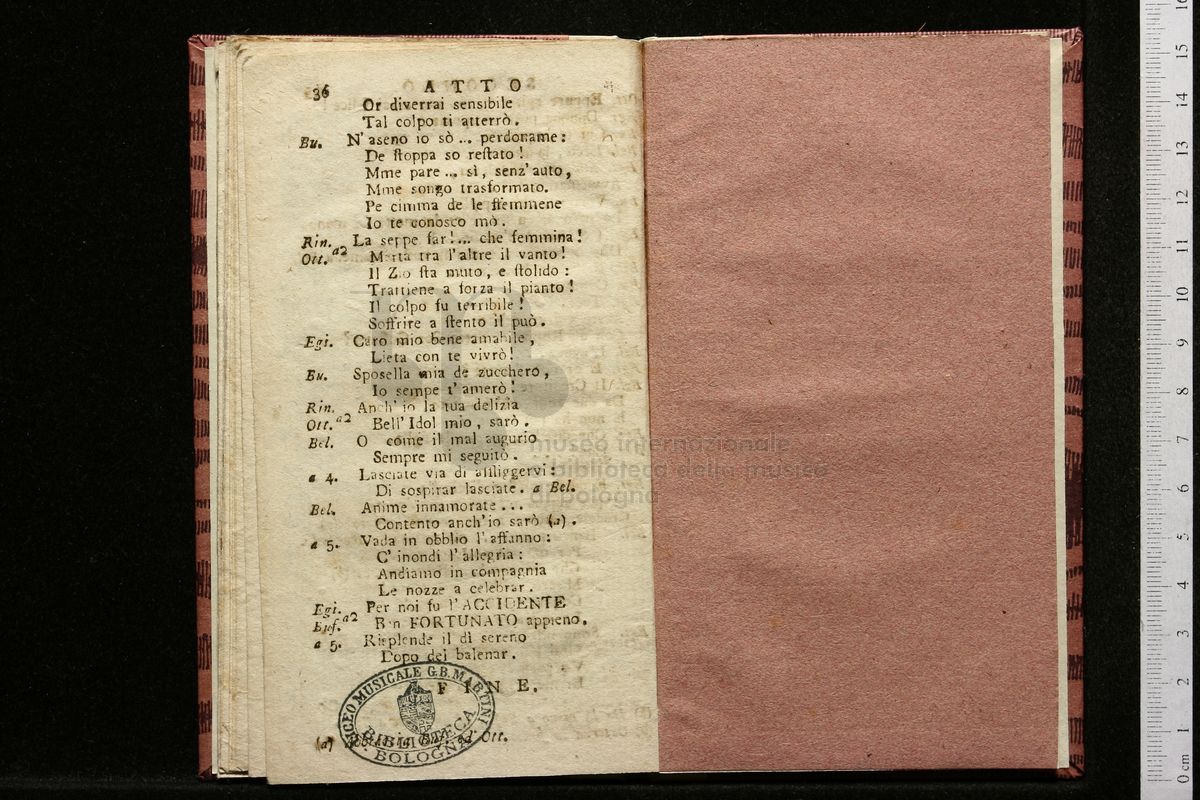 36 ATTO
Or diverrai sensibile
Tal colpo ti atterrò.
Bu. N'aseno io sò ... perdoname:
De ſtoppa so reſtato!
Mme pare ... sì, senz'auto,
Mme songo trasformato.
Pe cimma de le ffemmene
Io te conosco mò.
Rin. La seppe far!... che femmina!
Ott. a2 Merta tra l'altre il vanto!
Il Zio ſta muto, e ſtolido:
Trattiene a forza il pianto!
Il colpo fu terribile!
Soffrire a ſtento il può.
Egi. Caro mio bene amabile,
Lieta con te vivrò!
Bu. Sposella mia de zucchero,
Io sempe t'amerò!
Rin. Anch'io la tua delizia
Ott. a2 Bell'Idol mio, sarò.
Bel. O come il mal augurio
Sempre mi seguitò.
a 4. Lasciate via di affliggervi:
Di sospirar lasciate. a Bel.
Bel. Anime innamorate...
Contento anch'io sarò (a).
a 5. Vada in obblio l'affanno:
C'inondi l'allegria:
Andiamo in compagnia
Le nozze a celebrar.
Egi. Per noi fu l'ACCIDENTE
Buf. a2 Ben FORTUNATO appieno.
a 5. Risplende il dì sereno
Dopo dei balenar.
FINE.
(a) ed Ott.
LICEO MUSICALE G.B. MARTINI
BIBLIOTECA
BOLOGNA
museo internazionale
e biblioteca della musica
di bologna
0 cm 1 2 3 4 5 6 7 8 9 10 11 12 13 14 15 16